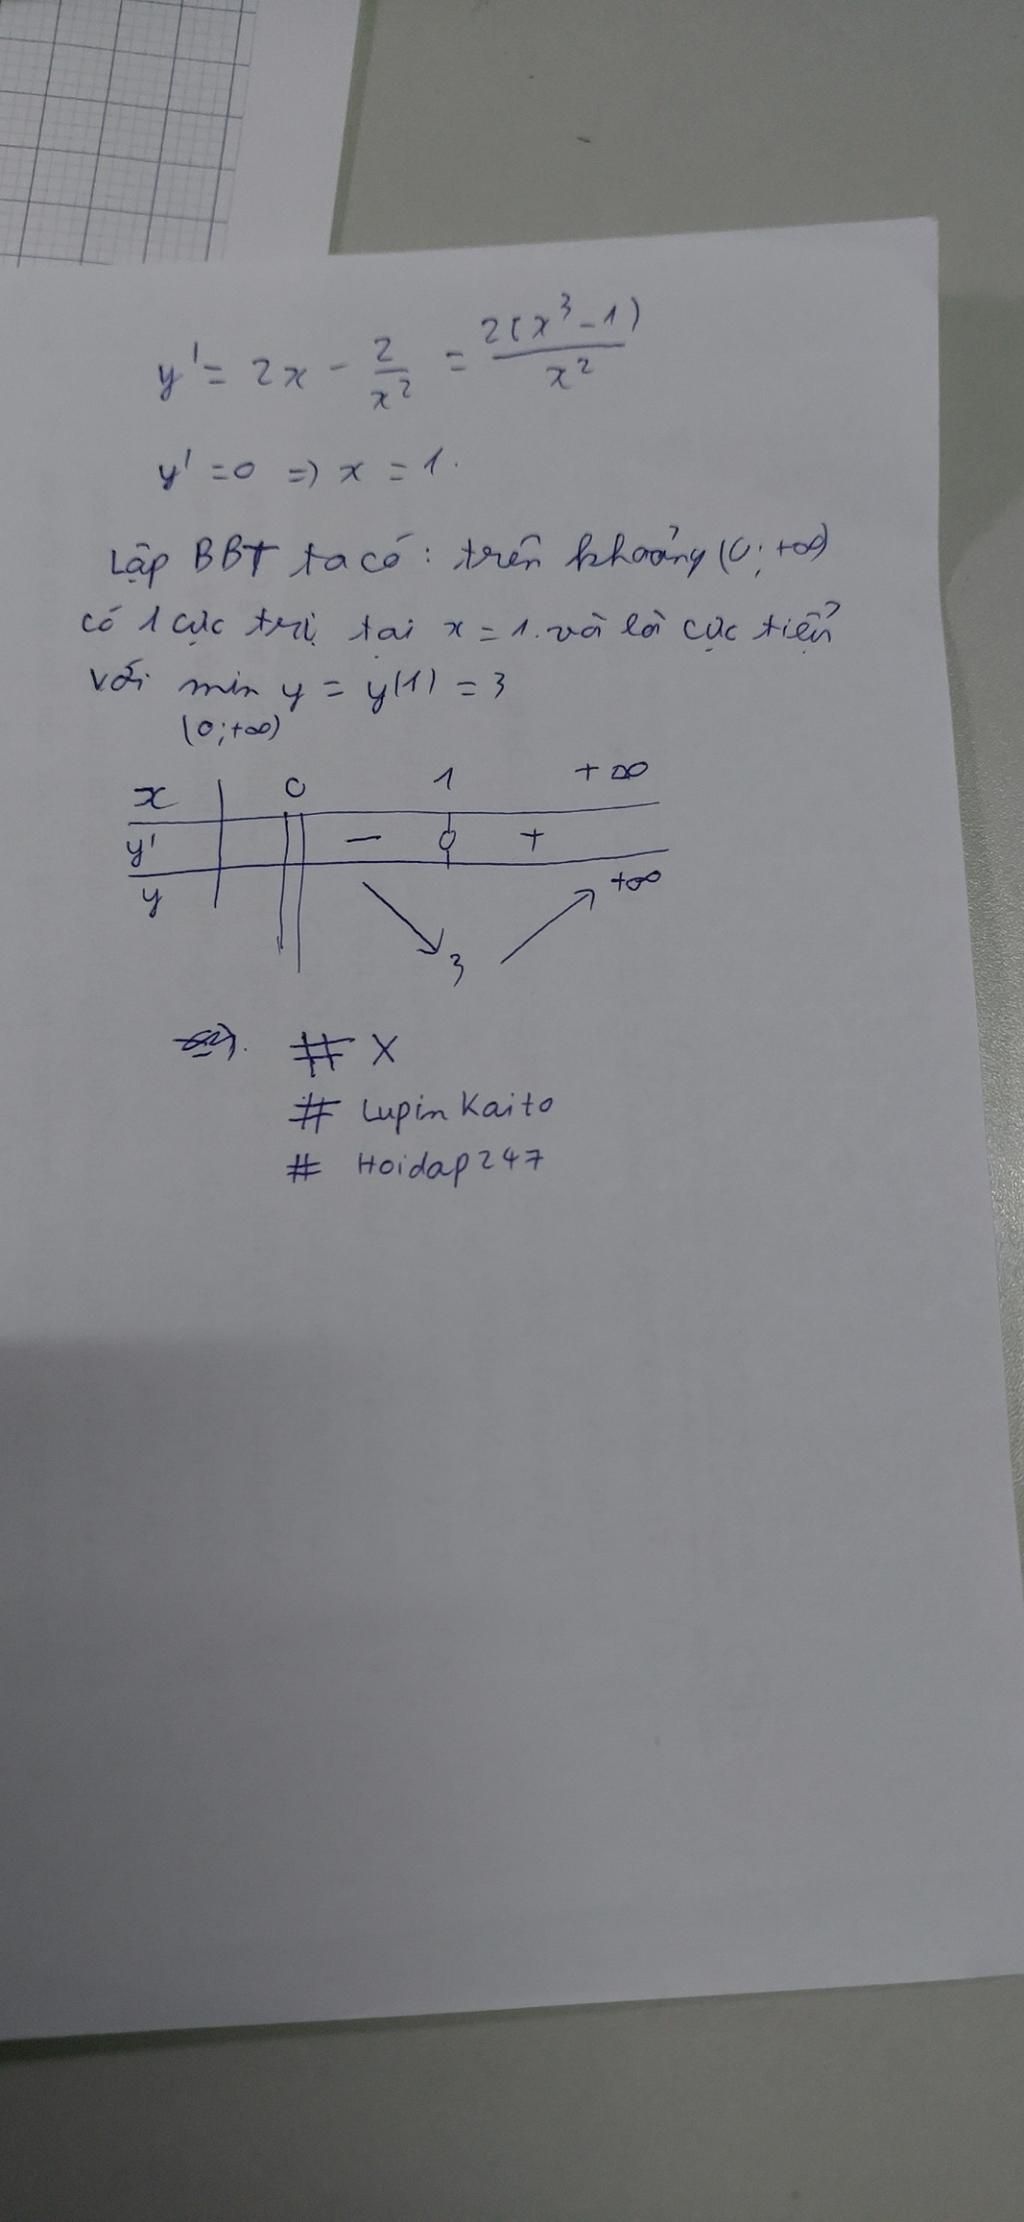 y' = 2x - 2/x² = 2(x³-1)/x²
y' = 0 => x = 1.
Lập BBT ta có: trên khoảng (0; +∞)
có 1 cực trị tại x = 1. và là cực tiểu
với min y = y(1) = 3
(0; +∞)
x 0 1 +∞
y' - 0 +
y +∞
3
# X
# Lupin Kaito
# Hoidap247